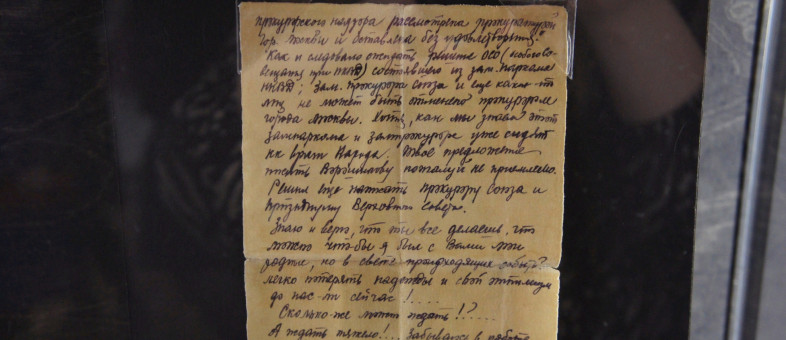 прокурорского надзора рассмотрена прокуратурой
гор. Москвы и оставлена без удовлетворения."
Как и следовало ожидать решение ОСО (особого со-
вещания при НКВД) состоявшего из зам. наркома
НКВД; зам. прокурора союза и еще каких-то
лиц не может быть отменено прокурором
города Москвы. Хотя, как мы знаем этот
замнаркома и зампрокурора уже сидят
как враги Народа. Твое предложение
писать Ворошилову пожалуй не приемлемо.
Решил еще написать Прокурору Союза и
Президиуму Верховного совета.
Знаю и верю, что ты все делаешь что
можно чтобы я был с Вами мои
родные, но в свете происходящих событий
легко потерять надежды и свой оптимизм
до нас-ли сейчас!.....
Сколько-же можно ждать!?.....
А ждать тяжело!... Забываюсь в работе